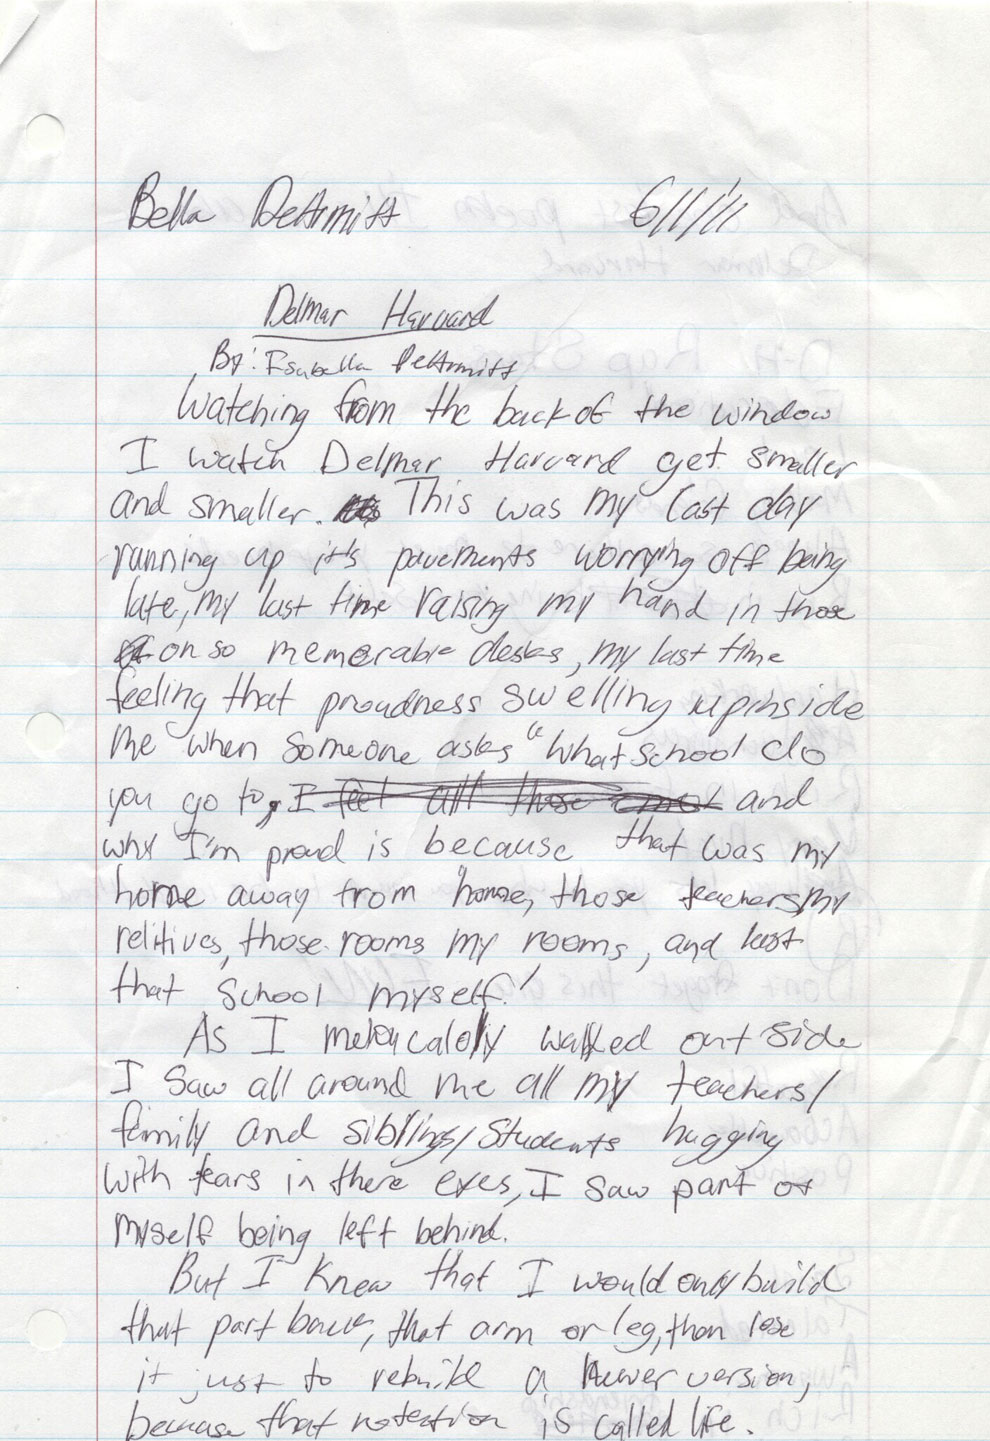 Bella DeArmitt 6/1/11
Delmar Harvard
By: Isabella DeArmitt
Watching from the back of the window
I watch Delmar Harvard get smaller
and smaller. This was my last day
running up it's pavements worrying off being
late, my last time raising my hand in those
on so memorable desks, my last time
feeling that proudness swelling up inside
me when someone asks "What school do
you go to, I feel all those and
why I'm proud is because that was my
home away from home, those teachers my
relitives, those rooms my rooms, and last
that school myself.
As I meloncaloly walked out side
I saw all around me all my teachers/
family and siblings/students hugging
with tears in there eyes, I saw part of
myself being left behind.
But I knew that I would only build
that part back, that arm or leg, than lose
it just to rebuild a newer version,
because that is called life.